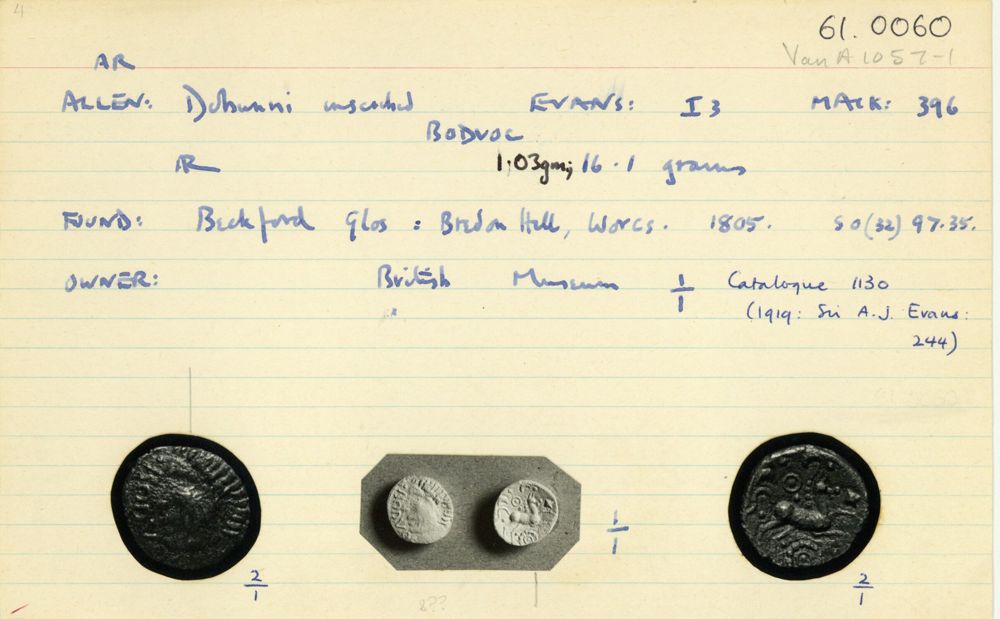 4
61.0060
Van A 1057-1
AR
ALLEN: Dobunni inscribed EVANS: I 3 MACK: 396
BODVOC
AR 1.03gm; 16.1 grams
FOUND: Beckford Glos : Bredon Hill, Worcs. 1805. SO(32) 97.35.
OWNER: British Museum 1/1 Catalogue 1130
" (1919: Sir A.J. Evans:
244)
1/1
2/1 2/1
8??